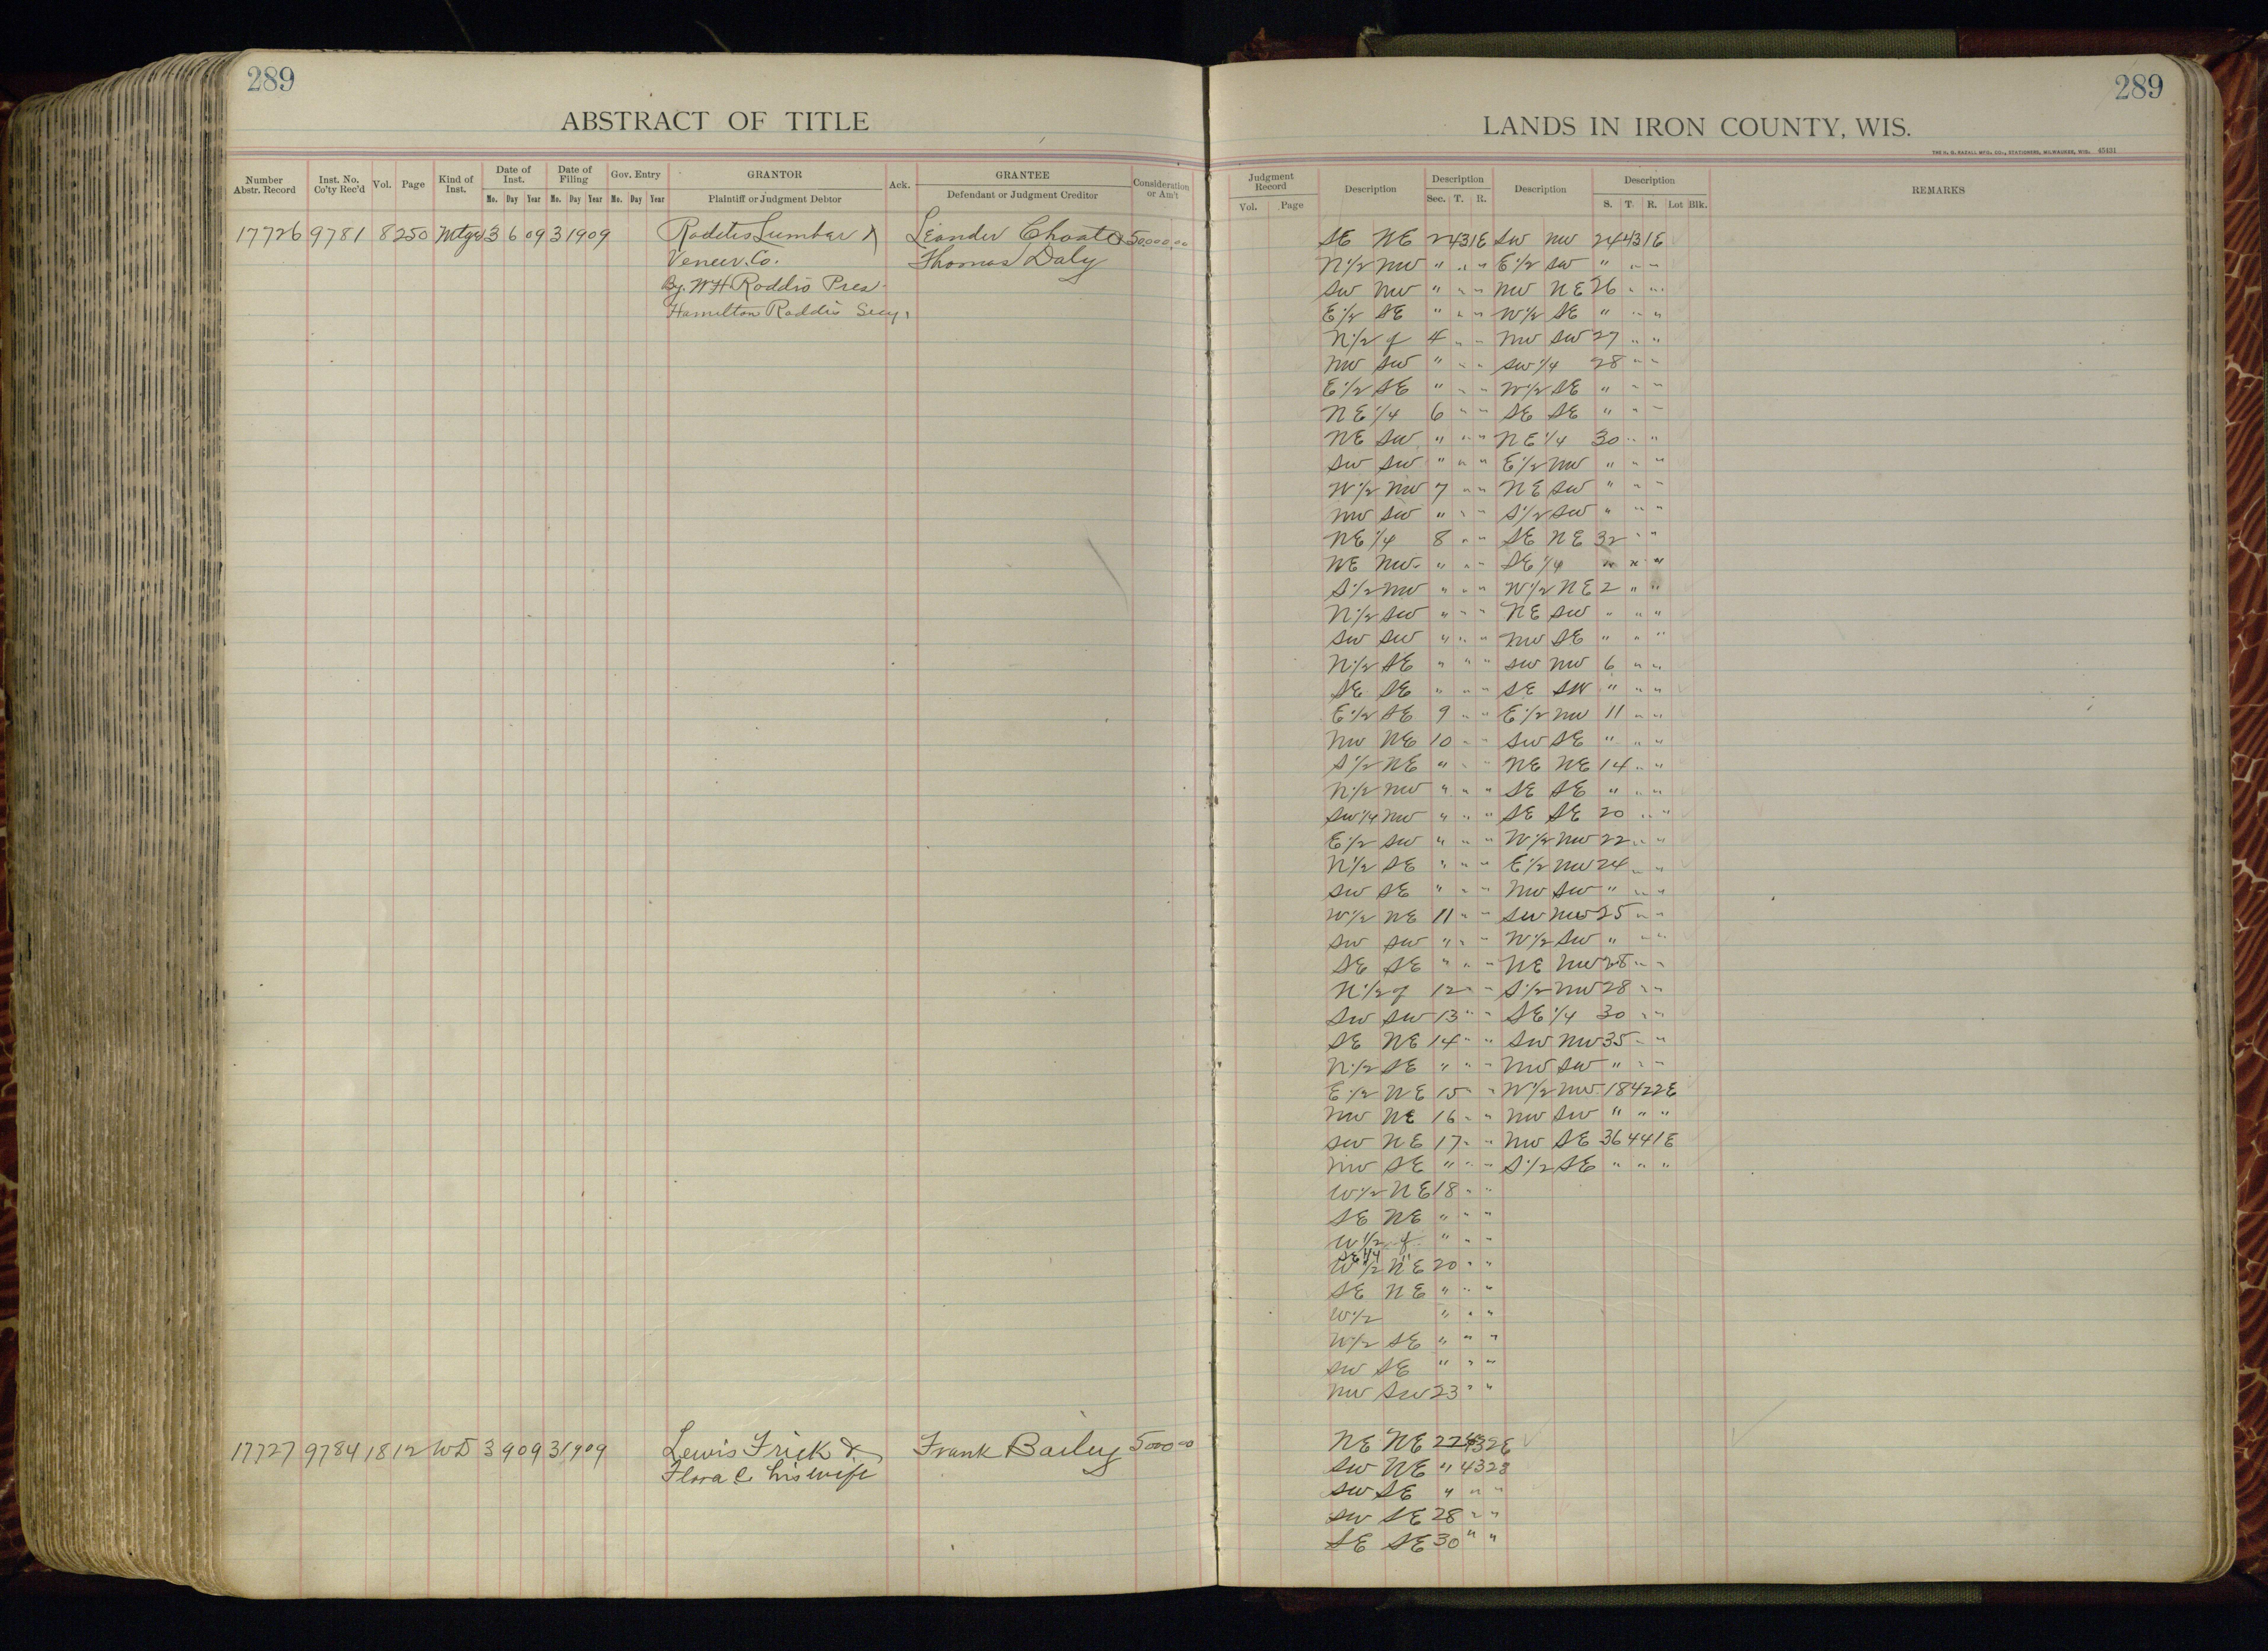 289
ABSTRACT OF TITLE
Number Abstr. Record
Inst. No. Co'ty Rec'd
Vol.
Page
Kind of Inst.
Date of Inst.
Mo. Day Year
Date of Filing
Mo. Day Year
Gov. Entry
Mo. Day Year
GRANTOR
Plaintiff or Judgment Debtor
Ack.
GRANTEE
Defendant or Judgment Creditor
Consideration or Am't
17726 9781 8 250 Mtge 3 6 09 3 19 09 Roddis Lumber & Leander Choate & 50,000.00
Veneer Co. Thomas Daly
By. W H Roddis Pres.
Hamilton Roddis Secy.
17727 9784 18 12 WD 3 9 09 3 19 09 Lewis Frick & Frank Bailey 5000.00
Flora C. his wife
289
LANDS IN IRON COUNTY, WIS.
THE H. G. RAZALL MFG. CO., STATIONERS, MILWAUKEE, WIS. 45431
Judgment Record
Vol. Page
Description
Description
Sec. T. R.
Description
Description
S. T. R. Lot Blk.
REMARKS
SE NE 2 43 1E SW NW 24 43 1E
N 1/2 NW " " " E 1/2 SW " " "
SW NW " " " NW NE 26 " "
E 1/2 SE " " " W 1/2 SE " " "
N 1/2 of 4 " " NW SW 27 " "
NW SW " " " SW 1/4 28 " "
E 1/2 SE " " " W 1/2 SE " " "
NE 1/4 6 " " SE SE " " "
NE SW " " " NE 1/4 30 " "
SW SW " " " E 1/2 NW " " "
W 1/2 NW 7 " " NE SW " " "
NW SW " " " S 1/2 SW " " "
NE 1/4 8 " " SE NE 32 " "
NE NW " " " SE 1/4 " " "
S 1/2 NW " " " W 1/2 NE 2 " "
N 1/2 SW " " " NE SW " " "
SW SW " " " NW SE " " "
N 1/2 SE " " " SW NW 6 " "
SE SE " " " SE SW " " "
E 1/2 SE 9 " " E 1/2 NW 11 " "
NW NE 10 " " SW SE " " "
S 1/2 NE " " " NE NE 14 " "
N 1/2 NW " " " SE SE " " "
SW 1/4 NW " " " SE SE 20 " "
E 1/2 SW " " " W 1/2 NW 22 " "
N 1/2 SE " " " E 1/2 NW 24 " "
SW SE " " " NW SW " " "
W 1/2 NE 11 " " SW NW 25 " "
SW SW " " " W 1/2 SW " " "
SE SE " " " NE NW 28 " "
N 1/2 of 12 " " S 1/2 NW 28 " "
SW SW 13 " " SE 1/4 30 " "
SE NE 14 " " SW NW 35 " "
N 1/2 SE " " " NW SW " " "
E 1/2 NE 15 " " W 1/2 NW 18 42 2E
NW NE 16 " " NW SW " " "
SW NE 17 " " NW SE 36 44 1E
NW SE " " " S 1/2 SE " " "
W 1/2 NE 18 " "
SE NE " " "
W 1/2 of " " "
SE 1/4 "
W 1/2 NE 20 " "
SE NE " " "
W 1/2 " " "
N 1/2 SE " " "
SW SE " " "
NW SW 23 " "
NE NE 22 43 2E
SW NE " 43 2E
SW SE " " "
SW SE 28 " "
SE SE 30 " "